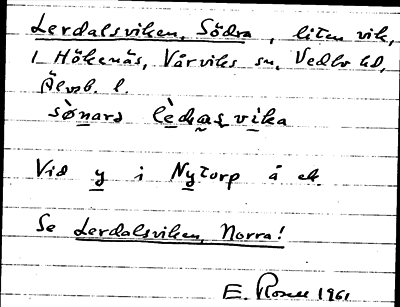 Lerdalsviken, Södra, liten vik,
i Hökenäs, Vårviks sn, Vedbo hd,
Älvsb. l.
sø̀narə lèdasvika
Vid y i Nytorp å ek.
Se Lerdalsviken, Norra!
E. Rosell 1961